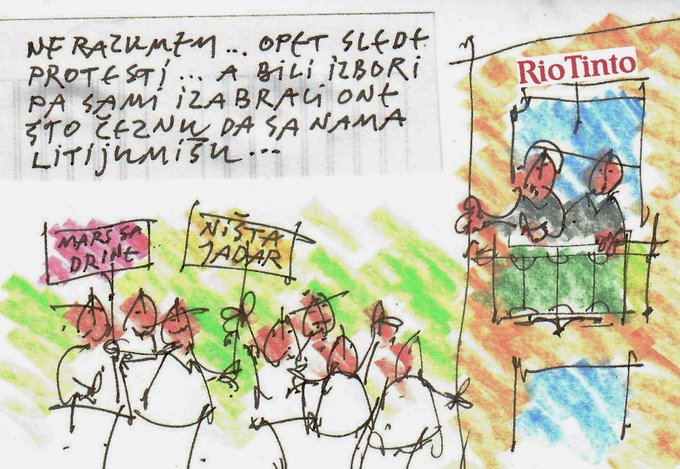 NE RAZUMEM... OPET SLEDE
PROTESTI... A BILI IZBORI
PA SAMI IZABRALI ONE
ŠTO ČEZNU DA SA NAMA
LITIJUMIŠU...
RioTinto
MARŠ SA
DRINE
NIŠTA
JADAR